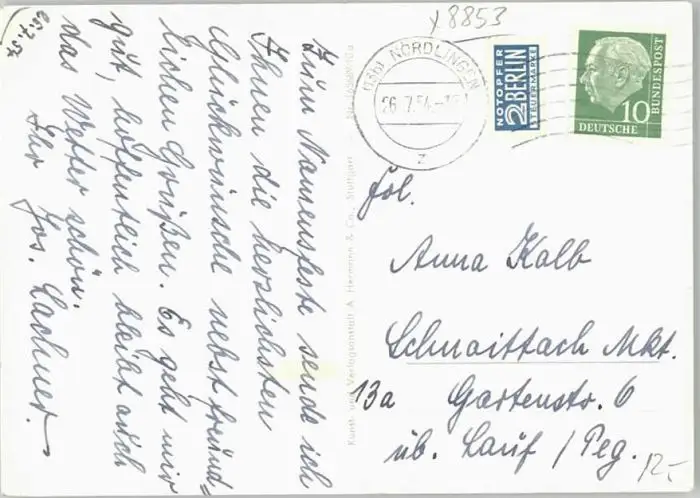 y 8853
25.7.54
Zum Namensfeste sende ich
Ihnen die herzlichsten
Glückwünsche nebst freund=
lichen Grüßen. Es geht mir
gut, hoffentlich bleibt auch
das Wetter schön.
Ihr Jos. Lachner.
Kunst- und Verlagsanstalt A. Hermann & Co., Stuttgart
NÖRDLINGEN
26.7.54
z
NOTOPFER
2 BERLIN
STEUERMARKE
10
DEUTSCHE
BUNDESPOST
Frl.
Anna Kalb
Schnaittach Mkt.
13a Gartenstr. 6
üb. Lauf / Peg.
12,-